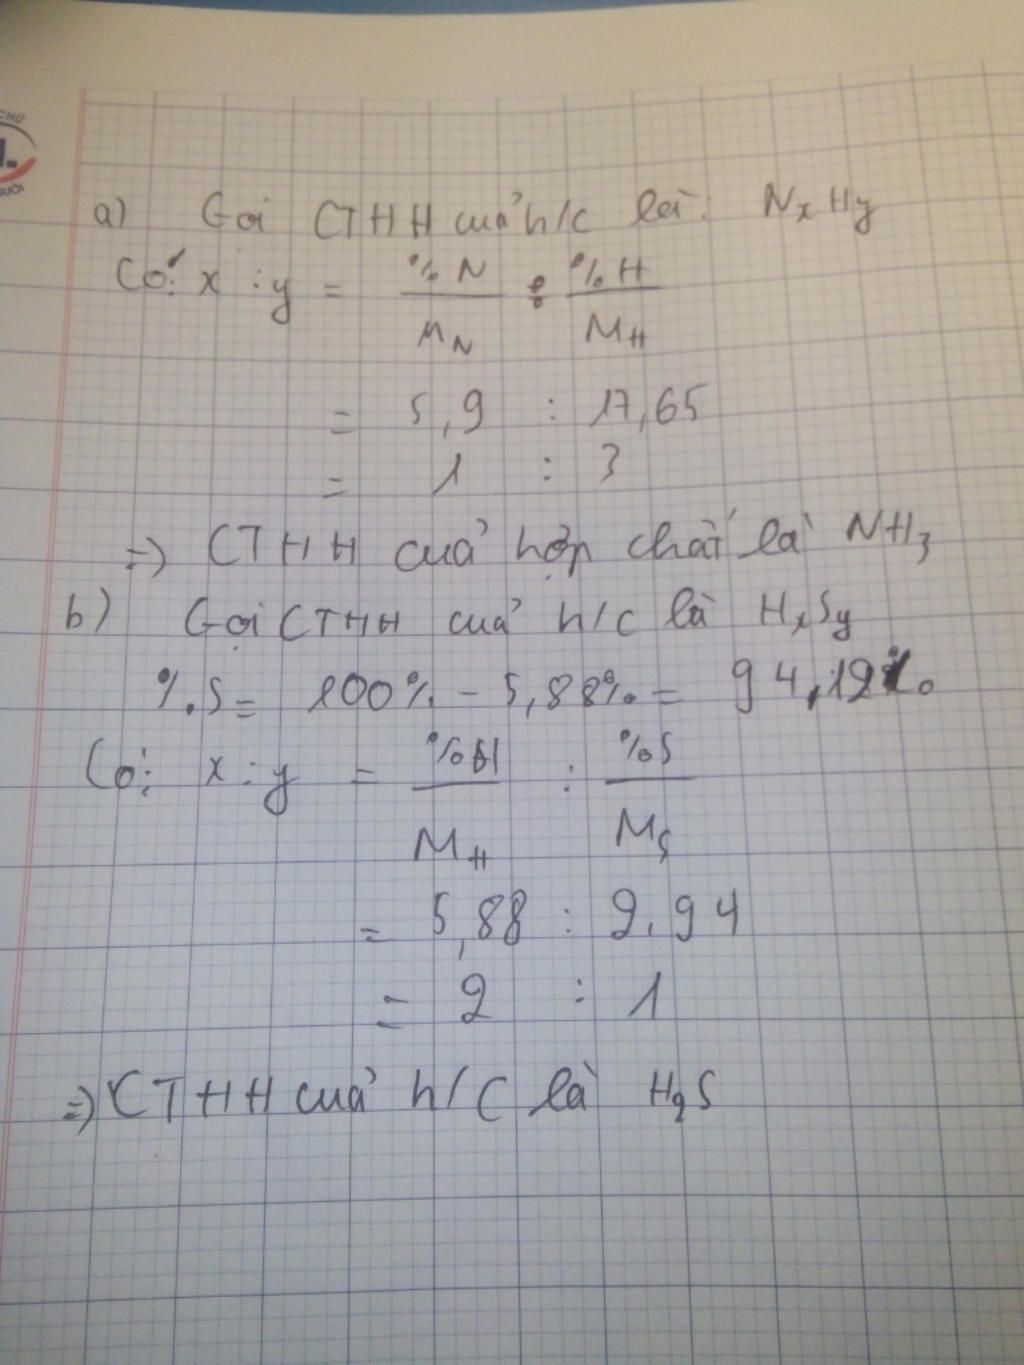 CHỮ
NGƯỜI
a) Gọi CTHH cuả h/c là: NxHy
Có: x : y = %N / MN : %H / MH
= 5,9 : 17,65
= 1 : 3
=> CTHH cuả hợp chất là NH3
b) Gọi CTHH cuả h/c là HxSy
%S = 100% - 5,88% = 94,12%
Có: x : y = %H / MH : %S / MS
= 5,88 : 2,94
= 2 : 1
=> CTHH cuả h/c là H2S